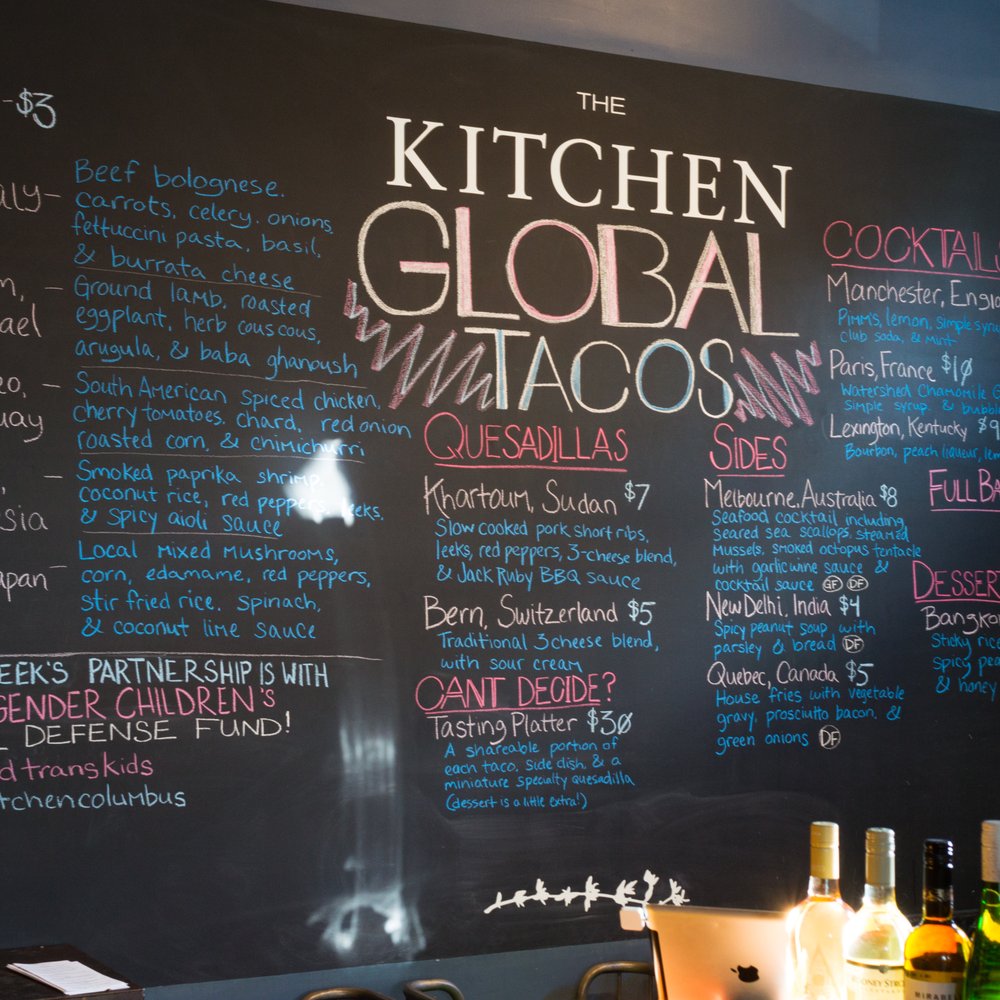 -$3
Beef bolognese.
carrots, celery. onions
fettuccini pasta, basil,
& burrata cheese
Ground lamb, roasted
eggplant, herb cous cous,
arugula, & baba ghanoush
South American spiced chicken,
cherry tomatoes, chard, red onion
roasted corn, & chimichurri
Smoked paprika shrimp,
coconut rice, red peppers, leeks.
& spicy aioli sauce
Local mixed mushrooms,
corn, edamame, red peppers,
stir fried rice, spinach,
& coconut lime sauce
PARTNERSHIP IS WITH
CHILDREN'S
DEFENSE FUND!
transkids
THE
KITCHEN
GLOBAL
TACOS
QUESADILLAS
Khartoum, Sudan $7
Slow cooked pork short ribs,
leeks, red peppers, 3-cheese blend,
& Jack Ruby BBQ sauce
Bern, Switzerland $5
Traditional 3 cheese blend,
with sour cream
CANT DECIDE?
Tasting Platter $30
A shareable portion of
each taco, side dish, & a
miniature specialty quesadilla
(dessert is a little extra!)
SIDES
Melbourne, Australia $8
Seafood cocktail including
seared sea scallops, steamed
mussels, smoked octopus tentacle
with garlic wine sauce &
cocktail sauce GF DF
New Delhi, India $4
Spicy peanut soup with
parsley & bread DF
Quebec, Canada $5
House fries with vegetable
gravy, prosciutto bacon, &
green onions DF
COCKTAILS
Manchester,
Pimm's, lemon, simple
club soda, & mint
Paris, France $10
Watershed Chamomile
Simple syrup, &
Lexington, Kentucky $9
Bourbon, peach liqueur,
FULL
DESSERT
Sticky rice
spicy
& honey